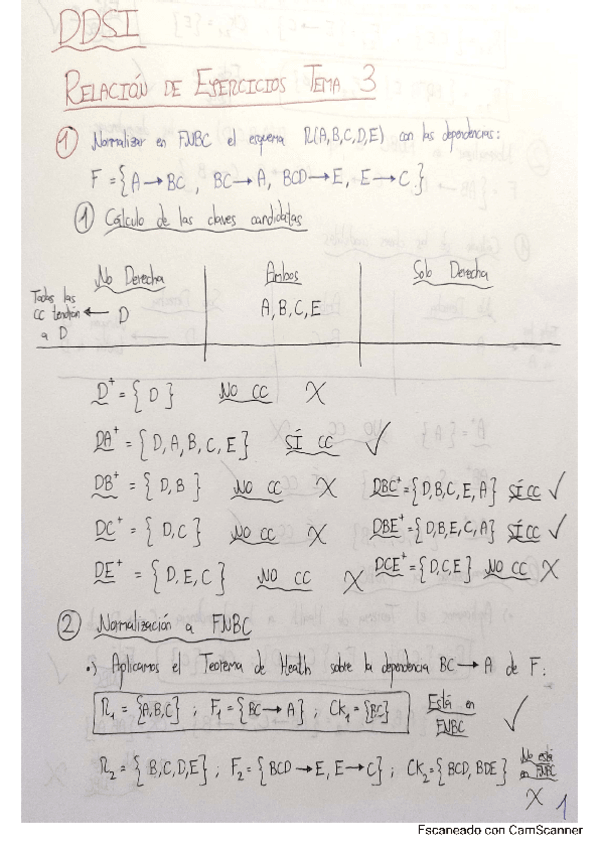 DDSI
RELACIÓN DE EJERCICIOS TEMA 3
① Normalizar en FNBC el esquema R(A,B,C,D,E) con las dependencias:
F = {A → BC , BC → A, BCD → E, E → C.}
① Cálculo de las claves candidatas
No Derecha Ambos Solo Derecha
Todas las CC tendrán a D ← D A, B, C, E
D⁺ = { D } NO CC X
DA⁺ = { D, A, B, C, E } SÍ CC ✓
DB⁺ = { D, B } NO CC X DBC⁺ = {D,B,C,E,A} SÍ CC ✓
DC⁺ = { D, C } NO CC X DBE⁺ = {D,B,E,C,A} SÍ CC ✓
DE⁺ = { D, E, C } NO CC X DCE⁺ = {D,C,E} NO CC X
② Normalización a FNBC
•) Aplicamos el Teorema de Heath sobre la dependencia BC → A de F:
R₁ = {A,B,C} ; F₁ = {BC → A} ; CK₁ = {BC} Está en FNBC ✓
R₂ = { B,C,D,E} ; F₂ = {BCD → E, E → C} ; CK₂ = {BCD, BDE} No está en FNBC X
1
Escaneado con CamScanner